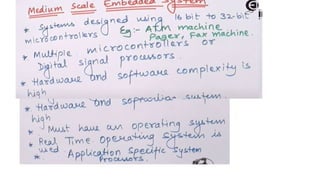 Medium Scale Embedded System
* Systems designed using 16 bit to 32-bit
microcontrollers Eg:- ATM machine
Pager, Fax machine.
* Multiple microcontrollers or
Digital signal processors.
* Hardware and software complexity is
high
* Hardware and system
high
* Must have an operating system
* Real Time Operating System is
used
* Application Specific System
Processors.